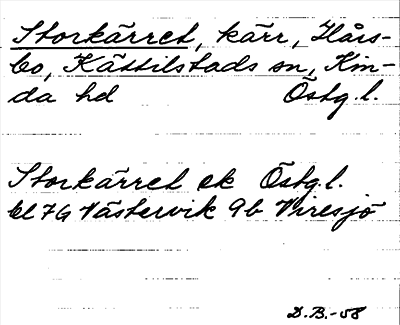 Storkärret, kärr, Hårs-
bo, Kättilstads sn, Kin-
da hd Östg.l.
Storkärret ek Östg.l.
bl 7G Västervik 9b Viresjö
D.B.-58